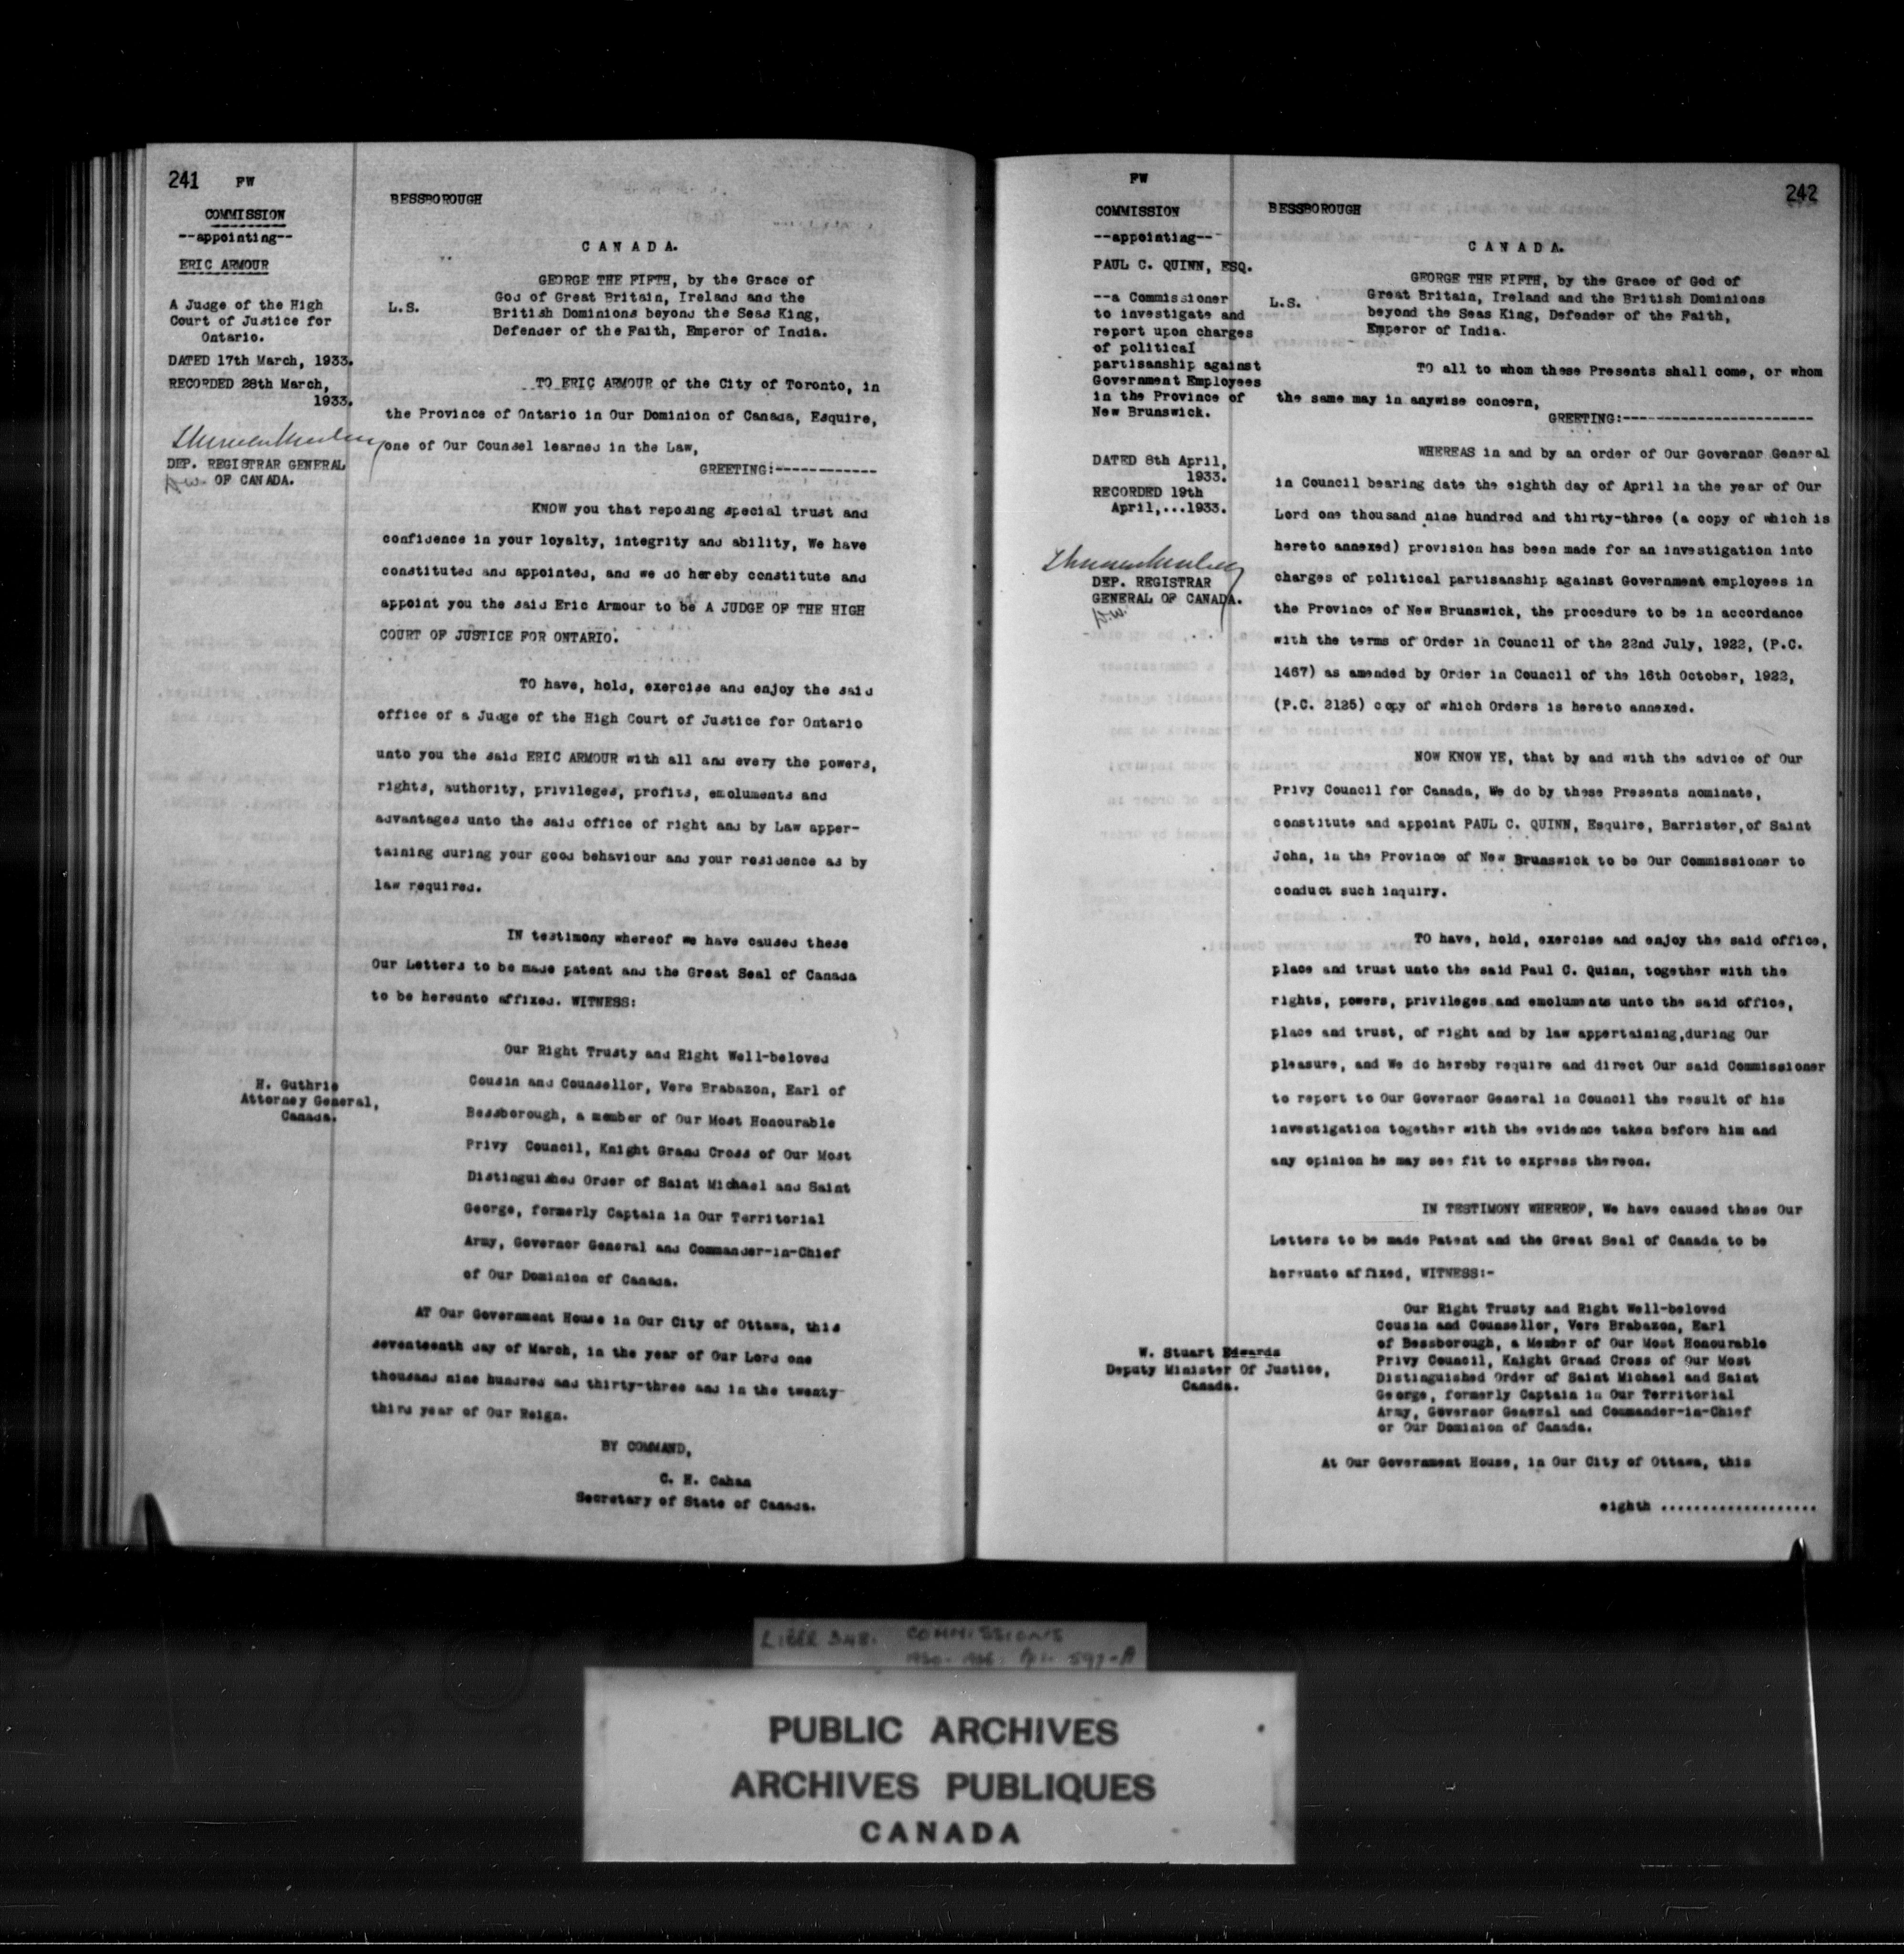 241 FW
COMMISSION
--appointing--
ERIC ARMOUR
A Judge of the High
Court of Justice for
Ontario.
DATED 17th March, 1933.
RECORDED 28th March,
1933.
DEP. REGISTRAR GENERAL
OF CANADA.
H. Guthrie
Attorney General,
Canada.
BESSBOROUGH
C A N A D A.
L.S.
GEORGE THE FIFTH, by the Grace of
God of Great Britain, Ireland and the
British Dominions beyond the Seas King,
Defender of the Faith, Emperor of India.
TO ERIC ARMOUR of the City of Toronto, in
the Province of Ontario in Our Dominion of Canada, Esquire,
one of Our Counsel learned in the Law,
GREETING:------------
KNOW you that reposing special trust and
confidence in your loyalty, integrity and ability, We have
constituted and appointed, and we do hereby constitute and
appoint you the said Eric Armour to be A JUDGE OF THE HIGH
COURT OF JUSTICE FOR ONTARIO.
TO have, hold, exercise and enjoy the said
office of a Judge of the High Court of Justice for Ontario
unto you the said ERIC ARMOUR with all and every the powers,
rights, authority, privileges, profits, emoluments and
advantages unto the said office of right and by Law apper-
taining during your good behaviour and your residence as by
law required.
IN testimony whereof we have caused these
Our Letters to be made patent and the Great Seal of Canada
to be hereunto affixed. WITNESS:
Our Right Trusty and Right Well-beloved
Cousin and Counsellor, Vere Brabazon, Earl of
Bessborough, a member of Our Most Honourable
Privy Council, Knight Grand Cross of Our Most
Distinguished Order of Saint Michael and Saint
George, formerly Captain in Our Territorial
Army, Governor General and Commander-in-Chief
of Our Dominion of Canada.
AT Our Government House in Our City of Ottawa, this
seventeenth day of March, in the year of Our Lord one
thousand nine hundred and thirty-three and in the twenty-
third year of Our Reign.
BY COMMAND,
C. H. Cahan
Secretary of State of Canada.
FW
242
COMMISSION
--appointing--
PAUL C. QUINN, ESQ.
--a Commissioner
to investigate and
report upon charges
of political
partisanship against
Government Employees
in the Province of
New Brunswick.
DATED 8th April,
1933.
RECORDED 19th
April,...1933.
DEP. REGISTRAR
GENERAL OF CANADA.
W. Stuart Edwards
Deputy Minister Of Justice,
Canada.
BESSBOROUGH
C A N A D A.
L.S.
GEORGE THE FIFTH, by the Grace of God of
Great Britain, Ireland and the British Dominions
beyond the Seas King, Defender of the Faith,
Emperor of India.
TO all to whom these Presents shall come, or whom
the same may in anywise concern,
GREETING:-----------------------
WHEREAS in and by an order of Our Governor General
in Council bearing date the eighth day of April in the year of Our
Lord one thousand nine hundred and thirty-three (a copy of which is
hereto annexed) provision has been made for an investigation into
charges of political partisanship against Government employees in
the Province of New Brunswick, the procedure to be in accordance
with the terms of Order in Council of the 22nd July, 1922, (P.C.
1467) as amended by Order in Council of the 16th October, 1922,
(P.C. 2125) copy of which Orders is hereto annexed.
NOW KNOW YE, that by and with the advice of Our
Privy Council for Canada, We do by these Presents nominate,
constitute and appoint PAUL C. QUINN, Esquire, Barrister, of Saint
John, in the Province of New Brunswick to be Our Commissioner to
conduct such inquiry.
TO have, hold, exercise and enjoy the said office,
place and trust unto the said Paul C. Quinn, together with the
rights, powers, privileges and emoluments unto the said office,
place and trust, of right and by law appertaining, during Our
pleasure, and We do hereby require and direct Our said Commissioner
to report to Our Governor General in Council the result of his
investigation together with the evidence taken before him and
any opinion he may see fit to express thereon.
IN TESTIMONY WHEREOF, We have caused these Our
Letters to be made Patent and the Great Seal of Canada to be
hereunto affixed, WITNESS:-
Our Right Trusty and Right Well-beloved
Cousin and Counsellor, Vere Brabazon, Earl
of Bessborough, a Member of Our Most Honourable
Privy Council, Knight Grand Cross of Our Most
Distinguished Order of Saint Michael and Saint
George, formerly Captain in Our Territorial
Army, Governor General and Commander-in-Chief
or Our Dominion of Canada.
At Our Government House, in Our City of Ottawa, this
eighth ...................
LIBER 348. COMMISSIONS
PUBLIC ARCHIVES
ARCHIVES PUBLIQUES
CANADA